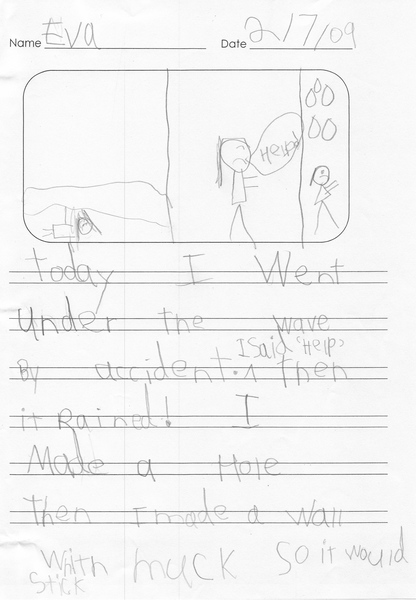 Name Eva Date 2/7/09
Help!
Today I Went
Under the wave
I said "Help"
By accident. ^ Then
it Rained! I
Made a Hole
Then I made a wall
Whith muck so it would
Stick